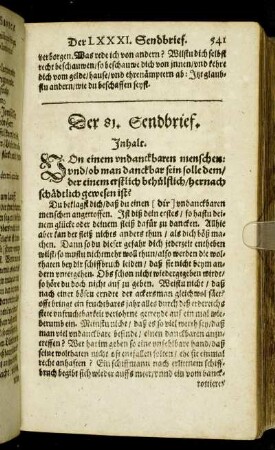 Der LXXXI. Sendbrief. 541
verborgen. Was rede ich von andern? Wilstu dich selbst
recht beschauwen / so beschauwe dich von jnnen / vnd kehre
dich vom gelde / hause / vnd ehrenämptern ab: Jtzt glaub-
stu andern / wie du beschaffen seyst.
Der 81. Sendbrief.
Jnhalt.
VOn einem vndanckbaren menschen:
vnd / ob man danckbar sein solle dem /
der einem erstlich behülflich / hernach
schädtlich gewesen ist?
Du beklagst dich / daß du einen [dir] vndanckbaren
menschen angetroffen. Jst diß dein erstes / so hastu dei-
nem glück oder deinem fleiß dafür zu dancken. Alhie
aber kan der fleiß nichts anders thun / als dich böß ma-
chen. Dann so du dieser gefahr dich jederzeit entheben
wilst / so mustu nicht mehr wol thun / also werden die wol-
thaten bey dir schiffbruch leiden / daß sie nicht beym an-
dern vntergehen. Obs schon nicht wiedergegeben würde /
so hör du doch nicht auf zu geben. Weistu nicht / daß
nach einer bösen erndte der ackersman gleichwol säet /
oft bringt ein fruchtbares jahr alles durch deß erdreichs
vnfruchtbarkeit verlohrne gemende auf ein mal wie-
derumb ein. Meinstu nicht / daß es so viel werth sey / daß
man vil vndanckbare befinde / einen danckbaren anzu-
treffen? Wer hat immer gehn so eine vnfehlbare hand / daß
seine wolthaten nicht oft entfallen solten / ehe sie einmal
recht anhaften? Ein schiffmann nach erlittenem schiff-
bruch begibt sich wieder aufs meer / vnd ein vom banck-
rottierer